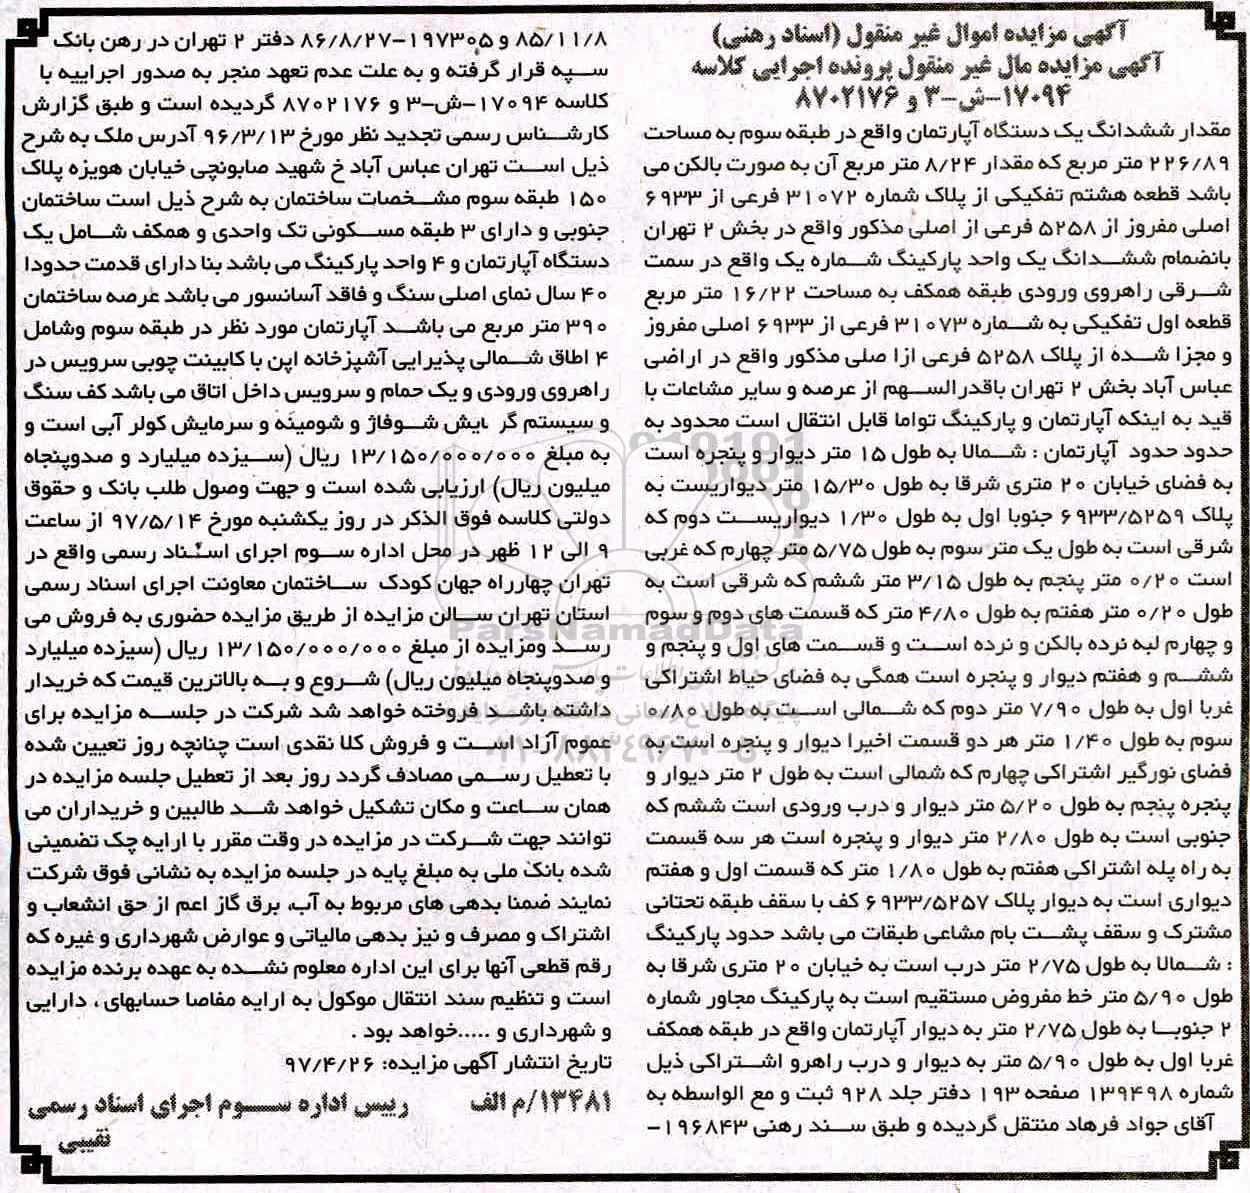 آگهی مزایده اموال غیر منقول (اسناد رهنی)
آگهی مزایده مال غیر منقول پرونده اجرایی کلاسه
۱۷۰۹۴-ش-۳ و ۸۷۰۲۱۷۶
مقدار ششدانگ یک دستگاه آپارتمان واقع در طبقه سوم به مساحت
۲۲۶/۸۹ متر مربع که مقدار ۸/۲۴ متر مربع آن به صورت بالکن می
باشد قطعه هشتم تفکیکی از پلاک شماره ۳۱۰۷۲ فرعی از ۶۹۳۳
اصلی مفروز از ۵۲۵۸ فرعی از اصلی مذکور واقع در بخش ۲ تهران
بانضمام ششدانگ یک واحد پارکینگ شماره یک واقع در سمت
شرقی راهروی ورودی طبقه همکف به مساحت ۱۶/۲۲ متر مربع
قطعه اول تفکیکی به شماره ۳۱۰۷۳ فرعی از ۶۹۳۳ اصلی مفروز
و مجزا شده از پلاک ۵۲۵۸ فرعی ازا صلی مذکور واقع در اراضی
عباس آباد بخش ۲ تهران باقدرالسهم از عرصه و سایر مشاعات با
قید به اینکه آپارتمان و پارکینگ تواما قابل انتقال است محدود به
حدود حدود آپارتمان : شمالا به طول ۱۵ متر دیوار و پنجره است
به فضای خیابان ۲۰ متری شرقا به طول ۱۵/۳۰ متر دیواریست به
پلاک ۶۹۳۳/۵۲۵۹ جنوبا اول به طول ۱/۳۰ دیواریست دوم که
شرقی است به طول یک متر سوم به طول ۵/۷۵ متر چهارم که غربی
است ۰/۲۰ متر پنجم به طول ۳/۱۵ متر ششم که شرقی است به
طول ۰/۲۰ متر هفتم به طول ۴/۸۰ متر که قسمت های دوم و سوم
و چهارم لبه نرده بالکن و نرده است و قسمت های اول و پنجم و
ششم و هفتم دیوار و پنجره است همگی به فضای حیاط اشتراکی
غربا اول به طول ۷/۹۰ متر دوم که شمالی است به طول ۰/۸۰
سوم به طول ۱/۴۰ متر هر دو قسمت اخیرا دیوار و پنجره است به
فضای نورگیر اشتراکی چهارم که شمالی است به طول ۲ متر دیوار و
پنجره پنجم به طول ۵/۲۰ متر دیوار و درب ورودی است ششم که
جنوبی است به طول ۲/۸۰ متر دیوار و پنجره است هر سه قسمت
به راه پله اشتراکی هفتم به طول ۱/۸۰ متر که قسمت اول و هفتم
دیواری است به دیوار پلاک ۶۹۳۳/۵۲۵۷ کف با سقف طبقه تحتانی
مشترک و سقف پشت بام مشاعی طبقات می باشد حدود پارکینگ
: شمالا به طول ۲/۷۵ متر درب است به خیابان ۲۰ متری شرقا به
طول ۵/۹۰ متر خط مفروض مستقیم است به پارکینگ مجاور شماره
۲ جنوبا به طول ۲/۷۵ متر به دیوار آپارتمان واقع در طبقه همکف
غربا اول به طول ۵/۹۰ متر به دیوار و درب راهرو اشتراکی ذیل
شماره ۱۳۹۴۹۸ صفحه ۱۹۳ دفتر جلد ۹۲۸ ثبت و مع الواسطه به
آقای جواد فرهاد منتقل گردیده و طبق سند رهنی ۱۹۶۸۴۳-
۸۵/۱۱/۸ و ۱۹۷۳۰۵-۸۶/۸/۲۷ دفتر ۲ تهران در رهن بانک
سپه قرار گرفته و به علت عدم تعهد منجر به صدور اجراییه با
کلاسه ۱۷۰۹۴-ش-۳ و ۸۷۰۲۱۷۶ گردیده است و طبق گزارش
کارشناس رسمی تجدید نظر مورخ ۹۶/۳/۱۳ آدرس ملک به شرح
ذیل است تهران عباس آباد خ شهید صابونچی خیابان هویزه پلاک
۱۵۰ طبقه سوم مشخصات ساختمان به شرح ذیل است ساختمان
جنوبی و دارای ۳ طبقه مسکونی تک واحدی و همکف شامل یک
دستگاه آپارتمان و ۴ واحد پارکینگ می باشد بنا دارای قدمت حدودا
۴۰ سال نمای اصلی سنگ و فاقد آسانسور می باشد عرصه ساختمان
۳۹۰ متر مربع می باشد آپارتمان مورد نظر در طبقه سوم وشامل
۴ اطاق شمالی پذیرایی آشپزخانه اپن با کابینت چوبی سرویس در
راهروی ورودی و یک حمام و سرویس داخل اتاق می باشد کف سنگ
و سیستم گر ایش شوفاژ و شومینه و سرمایش کولر آبی است و
به مبلغ ۱۳/۱۵۰/۰۰۰/۰۰۰ ریال (سیزده میلیارد و صدوپنجاه
میلیون ریال) ارزیابی شده است و جهت وصول طلب بانک و حقوق
دولتی کلاسه فوق الذکر در روز یکشنبه مورخ ۹۷/۵/۱۴ از ساعت
۹ الی ۱۲ ظهر در محل اداره سوم اجرای اسناد رسمی واقع در
تهران چهارراه جهان کودک ساختمان معاونت اجرای اسناد رسمی
استان تهران سالن مزایده از طریق مزایده حضوری به فروش می
رسد ومزایده از مبلغ ۱۳/۱۵۰/۰۰۰/۰۰۰ ریال (سیزده میلیارد
و صدوپنجاه میلیون ریال) شروع و به بالاترین قیمت که خریدار
داشته باشد فروخته خواهد شد شرکت در جلسه مزایده برای
عموم آزاد است و فروش کلا نقدی است چنانچه روز تعیین شده
با تعطیل رسمی مصادف گردد روز بعد از تعطیل جلسه مزایده در
همان ساعت و مکان تشکیل خواهد شد طالبین و خریداران می
توانند جهت شرکت در مزایده در وقت مقرر با ارایه چک تضمینی
شده بانک ملی به مبلغ پایه در جلسه مزایده به نشانی فوق شرکت
نمایند ضمنا بدهی های مربوط به آب، برق گاز اعم از حق انشعاب و
اشتراک و مصرف و نیز بدهی مالیاتی و عوارض شهرداری و غیره که
رقم قطعی آنها برای این اداره معلوم نشده به عهده برنده مزایده
است و تنظیم سند انتقال موکول به ارایه مفاصا حسابهای ، دارایی
و شهرداری و .....خواهد بود .
تاریخ انتشار آگهی مزایده: ۹۷/۴/۲۶
۱۳۴۸۱/م الف رییس اداره سوم اجرای اسناد رسمی
نقیبی
ParsNamadData